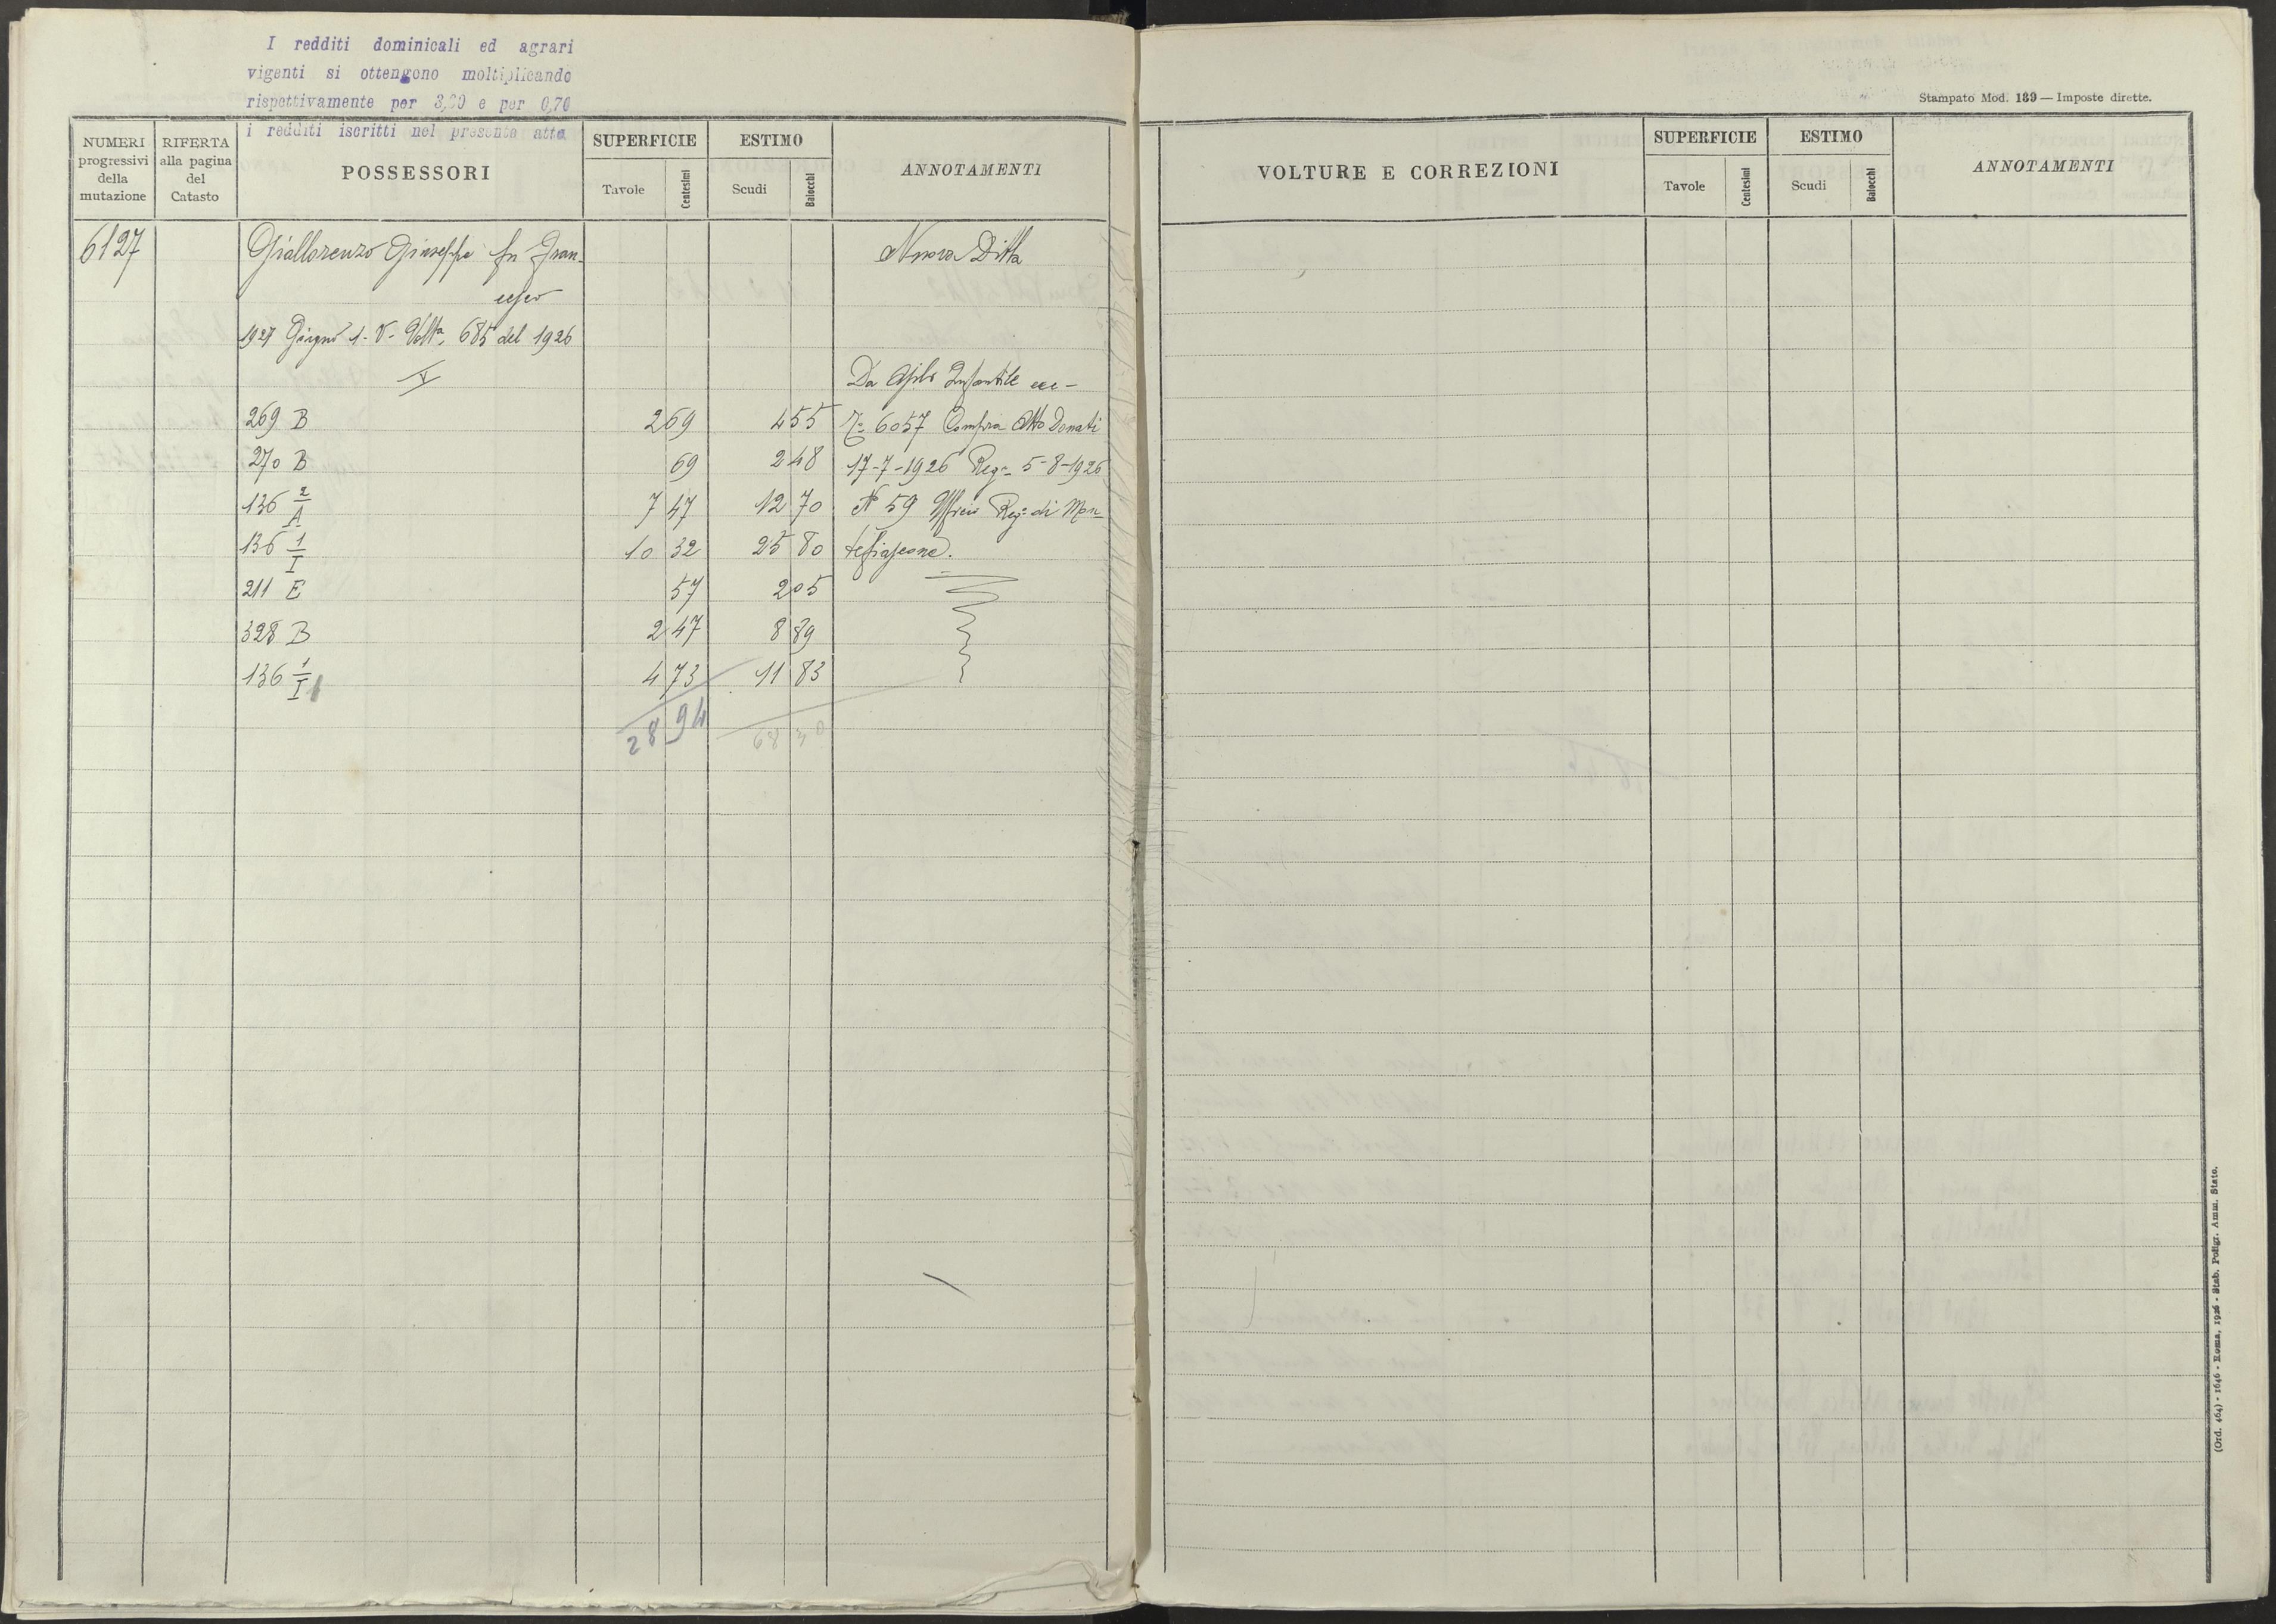 I redditi dominicali ed agrari
vigenti si ottengono moltiplicando
rispettivamente per 3,00 e per 0,70
i redditi iscritti nel presente atto
NUMERI progressivi della mutazione
RIFERTA alla pagina del Catasto
POSSESSORI
SUPERFICIE
Tavole Centesimi
ESTIMO
Scudi Baiocchi
ANNOTAMENTI
6127 Giallorenzo Giuseppe fu Fran- Nuova Ditta
cesco
1927 Giugno 1. V. Voltª 685 del 1926
V Da Asilo Infantile
269 B 2 69 4 55 Nº 6057 Compra Atto Donati
270 B 69 2 48 17-7-1926 Regº 5-8-1926
136 2/A 7 47 12 70 N 59 Ufficio Regº di Mon-
136 1/I 10 32 25 80 tefiascone.
211 E 57 2 05
328 B 2 47 8 89
136 1/I 4 73 11 83
28 94 68 30
Stampato Mod. 139 — Imposte dirette.
VOLTURE E CORREZIONI
SUPERFICIE
Tavole Centesimi
ESTIMO
Scudi Baiocchi
ANNOTAMENTI
(Ord. 464) - 1646 - Roma, 1926 - Stab. Poligr. Amm. Stato.